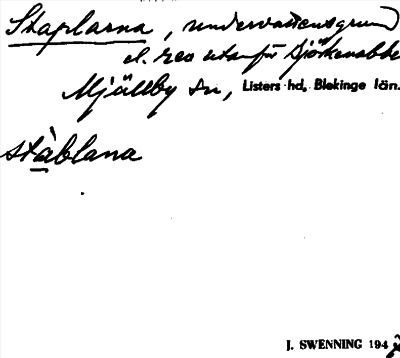 Staplarna, undervattensgrund
el. rev utanför Björkenabbe
Mjällby sn, Listers hd, Blekinge län.
stàblana
J. SWENNING 194